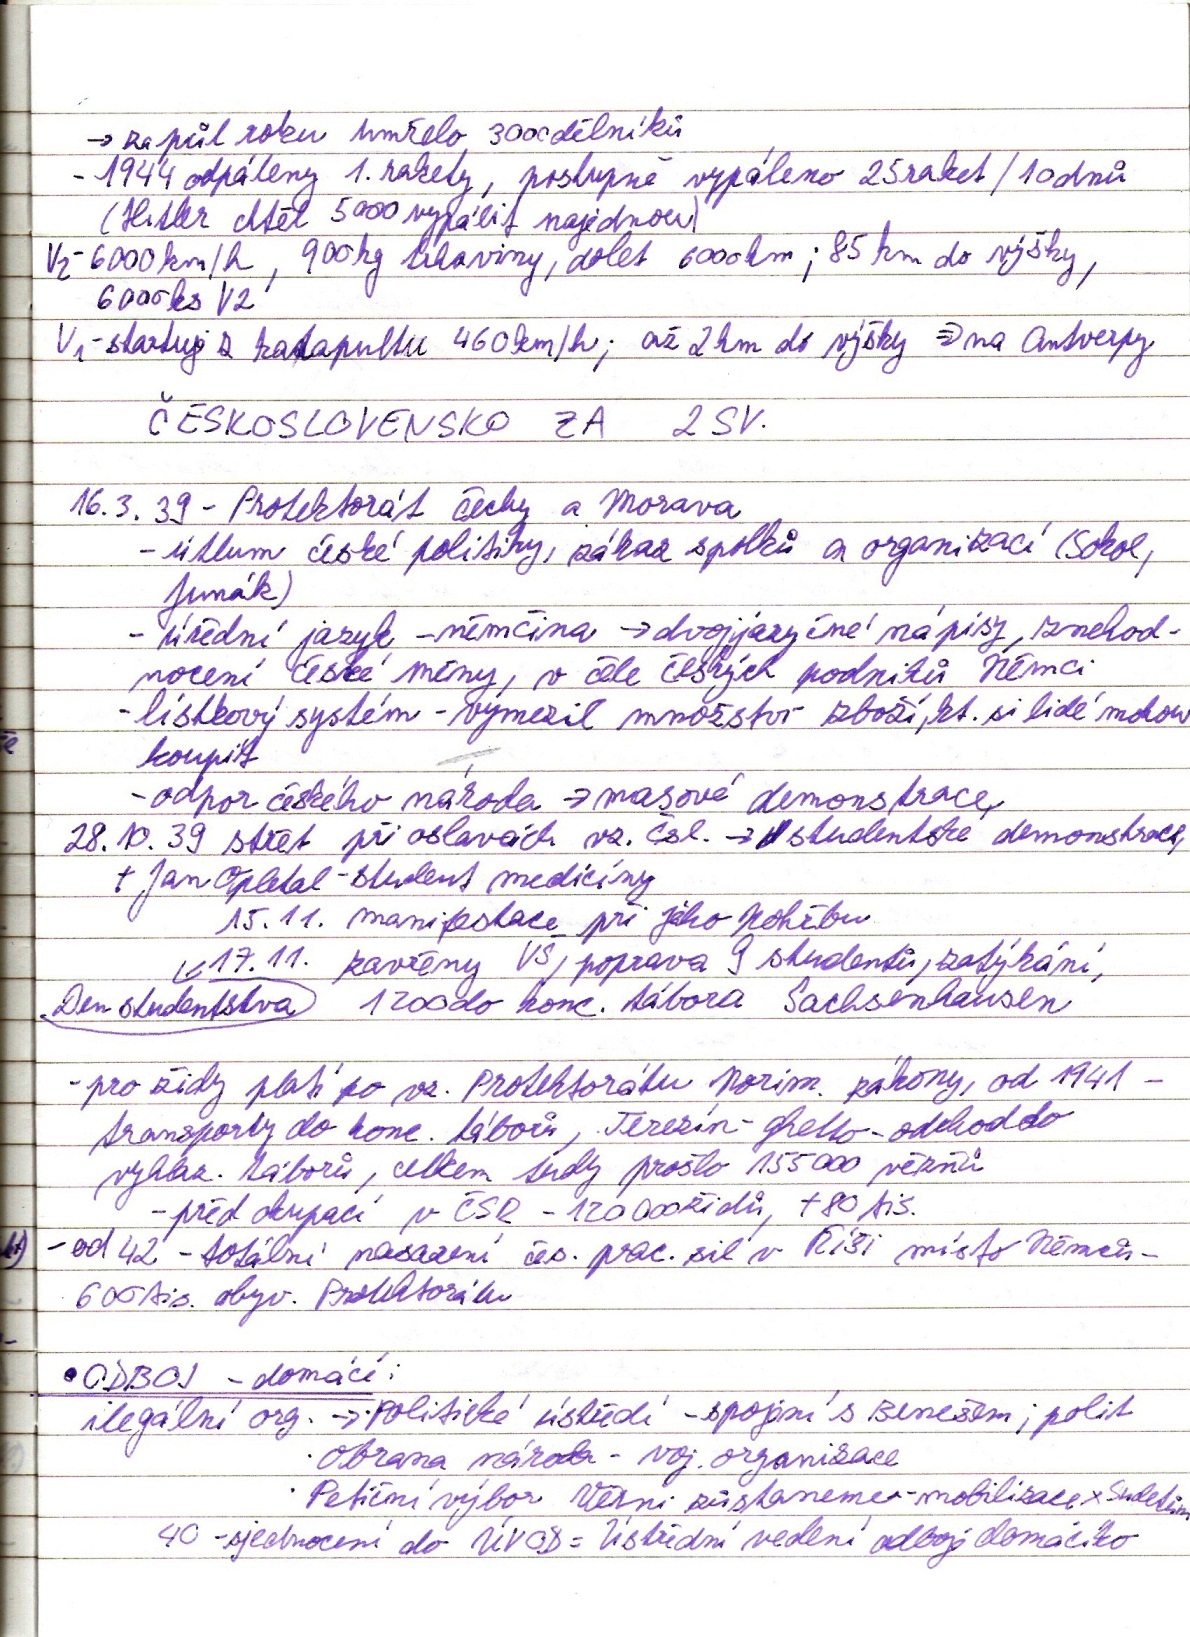 → za půl roku umřelo 3000 dělníků
- 1944 odpáleny 1. rakety, postupně vypáleno 25 raket / 10 dnů
(Hitler chtěl 5000 vypálit najednou)
V2 - 6000 km/h, 900 kg trhaviny, dolet 6000 km; 85 km do výšky,
6000 ks V2
V1 - startují z katapultu 460 km/h; až 2 km do výšky ⇒ na Antverpy
ČESKOSLOVENSKO ZA 2 SV.
16. 3. 39 - Protektorát Čechy a Morava
- útlum české politiky, zákaz spolků a organizací (Sokol,
Junák)
- úřední jazyk - němčina → dvojjazyčné nápisy, znehod-
nocení české měny, v čele českých podniků Němci
- lístkový systém - vymezil množství zboží, kt. si lidé mohou
koupit
- odpor českého národa → masové demonstrace
28. 10. 39 střet při oslavách vz. Čsl. → studentské demonstrace,
+ Jan Opletal - student medicíny
15. 11. manifestace při jeho pohřbu
↙ 17. 11. zavřeny VŠ, poprava 9 studentů, zatýkání,
Den studentstva 1200 do konc. tábora Sachsenhausen
- pro židy platí po vz. Protektorátu Norim. zákony, od 1941 -
transporty do konc. táborů, Terezín - ghetto - odchod do
vyhlaz. táborů, celkem tudy prošlo 155 000 vězňů
- před okupací v ČSR - 120 000 židů, + 80 tis.
- od 42 - totální nasazení čes. prac. sil v Říši místo Němců -
600 tis. obyv. Protektorátu
• ODBOJ - domácí:
ilegální org. → · Politické ústředí - spojení s Benešem; polit
· Obrana národa - voj. organizace
· Petiční výbor Věrni zůstaneme - mobilizace x Sudetům
40 - sjednocení do ÚVOD = Ústřední vedení odboje domácího